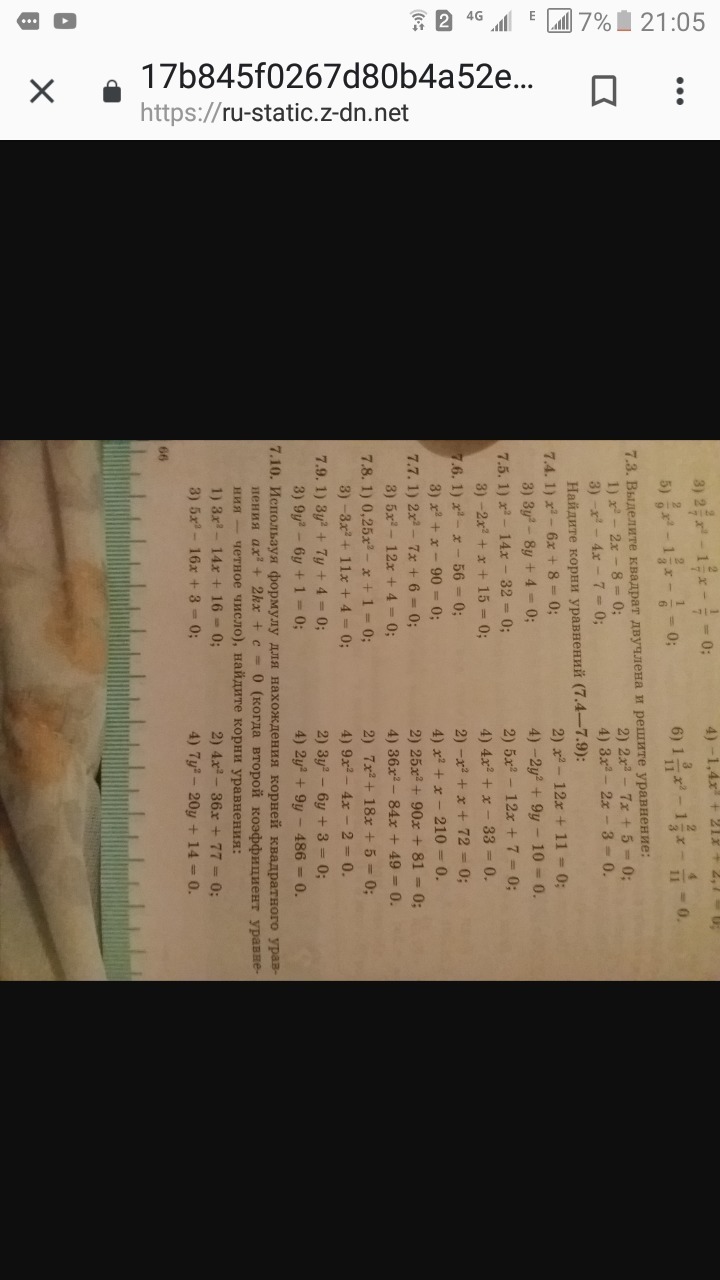 2 4G E 7% 21:05
17b845f0267d80b4a52e...
https://ru-static.z-dn.net
5) 2/9 x² − 1 2/3 x − 1/6 = 0;
6) 1 3/11 x² − 1 2/3 x − 4/11 = 0.
7.3. Выделите квадрат двучлена и решите уравнение:
1) x² − 2x − 8 = 0;
2) 2x² − 7x + 5 = 0;
3) −x² − 4x − 7 = 0;
4) 3x² − 2x − 3 = 0.
Найдите корни уравнений (7.4—7.9):
7.4. 1) x² − 6x + 8 = 0;
2) x² − 12x + 11 = 0;
3) 3y² − 8y + 4 = 0;
4) −2y² + 9y − 10 = 0.
7.5. 1) x² − 14x − 32 = 0;
2) 5x² − 12x + 7 = 0;
3) −2x² + x + 15 = 0;
4) 4x² + x − 33 = 0.
7.6. 1) x² − x − 56 = 0;
2) −x² + x + 72 = 0;
3) x² + x − 90 = 0;
4) x² + x − 210 = 0.
7.7. 1) 2x² − 7x + 6 = 0;
2) 25x² + 90x + 81 = 0;
3) 5x² − 12x + 4 = 0;
4) 36x² − 84x + 49 = 0.
7.8. 1) 0,25x² − x + 1 = 0;
2) 7x² + 18x + 5 = 0;
3) −3x² + 11x + 4 = 0;
4) 9x² − 4x − 2 = 0.
7.9. 1) 3y² + 7y + 4 = 0;
2) 3y² − 6y + 3 = 0;
3) 9y² − 6y + 1 = 0;
4) 2y² + 9y − 486 = 0.
7.10. Используя формулу для нахождения корней квадратного урав-
нения ax² + 2kx + c = 0 (когда второй коэффициент уравне-
ния — четное число), найдите корни уравнения:
1) 3x² − 14x + 16 = 0;
2) 4x² − 36x + 77 = 0;
3) 5x² − 16x + 3 = 0;
4) 7y² − 20y + 14 = 0.
66